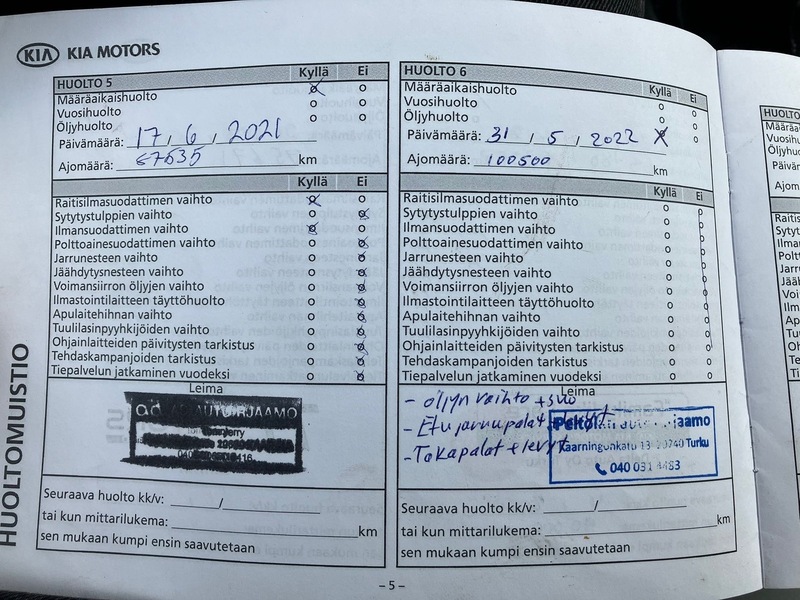 KIA KIA MOTORS
HUOLTO 5 Kyllä Ei
Määräaikaishuolto
Vuosihuolto
Öljyhuolto
Päivämäärä: 17, 6, 2021
Ajomäärä: 67535 km
Kyllä Ei
Raitisilmasuodattimen vaihto
Sytytystulppien vaihto
Ilmansuodattimen vaihto
Polttoainesuodattimen vaihto
Jarrunesteen vaihto
Jäähdytysnesteen vaihto
Voimansiirron öljyjen vaihto
Ilmastointilaitteen täyttöhuolto
Apulaitehihnan vaihto
Tuulilasinpyyhkijöiden vaihto
Ohjainlaitteiden päivitysten tarkistus
Tehdaskampanjoiden tarkistus
Tiepalvelun jatkaminen vuodeksi
Leima
AUTO
Seuraava huolto kk/v: /
tai kun mittarilukema: km
sen mukaan kumpi ensin saavutetaan
HUOLTO 6 Kyllä Ei
Määräaikaishuolto
Vuosihuolto
Öljyhuolto
Päivämäärä: 31, 5, 2022 X
Ajomäärä: 100500 km
Kyllä Ei
Raitisilmasuodattimen vaihto
Sytytystulppien vaihto
Ilmansuodattimen vaihto
Polttoainesuodattimen vaihto
Jarrunesteen vaihto
Jäähdytysnesteen vaihto
Voimansiirron öljyjen vaihto
Ilmastointilaitteen täyttöhuolto
Apulaitehihnan vaihto
Tuulilasinpyyhkijöiden vaihto
Ohjainlaitteiden päivitysten tarkistus
Tehdaskampanjoiden tarkistus
Tiepalvelun jatkaminen vuodeksi
Leima
- öljyn vaihto + suo
- Etujarrupalat
- Takapalat + levyt
Kaarningonkatu 13 20740 Turku
Seuraava huolto kk/v: /
tai kun mittarilukema: km
sen mukaan kumpi ensin saavutetaan
HUOLTOMUISTIO
– 5 –